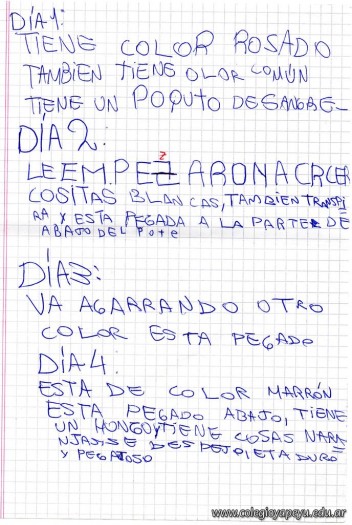 DÍA 1:
TIENE COLOR ROSADO
TAMBIEN TIENE OLOR COMÚN
TIENE UN POQUTO DE SANGRE-
DÍA 2:
LE EMPEZARON A CRCER
COSITAS BLANCAS, TAMBIEN TRANSPI
RA Y ESTA PEGADA A LA PARTE DE
ABAJO DEL POTE
DÍA 3:
VA AGARRANDO OTRO
COLOR ESTA PEGADO
DÍA 4:
ESTA DE COLOR MARRÓN
ESTA PEGADO ABAJO, TIENE
UN HONGO Y TIENE COSAS NARA
NJAS, SE DESPEJO, ETA DURO
Y PEGATOSO
www.colegioyapeyu.edu.ar